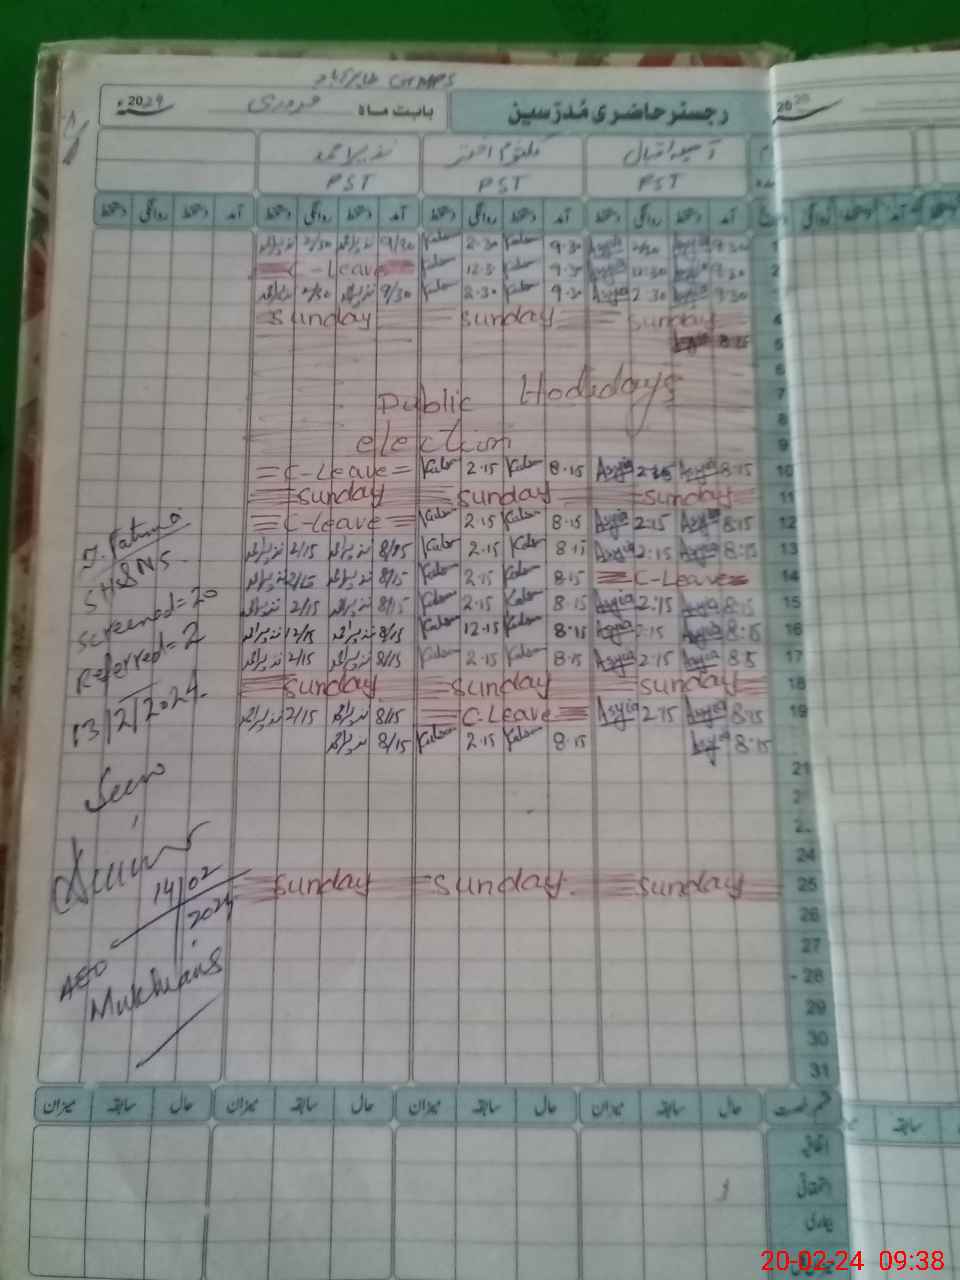 GMPS
رجسٹر حاضری مُدرّسین بابت ماہ فروری 2024ء
آسیہ اقبال کلثوم اختر نذیر احمد
PST PST PST
آمد دستخط روانگی دستخط آمد دستخط روانگی دستخط آمد دستخط روانگی دستخط آمد دستخط روانگی دستخط
9.30 Asyia 9.30 Kalsom 2.30 Kalsom 9/30 نذیراحمد 2/30 نذیراحمد
2 9.30 Asyia 12.30 Asyia 9.30 Kalsom 12.3 Kalsom = C-Leave =
9.30 Asyia 2.30 Asyia 9.30 Kalsom 2.30 Kalsom 9/30 نذیراحمد 2/30 نذیراحمد
4 Sunday Sunday Sunday
5 Asyia 8.15
6
7 Public Holidays
8
9 election
10 8.15 Asyia 2.15 Asyia 8.15 Kalsom 2.15 Kalsom = C-Leave =
11 Sunday Sunday Sunday
12 8.15 Asyia 2.15 Asyia 8.15 Kalsom 2.15 Kalsom = C-Leave =
13 8.15 Asyia 2.15 Asyia 8.15 Kalsom 2.15 Kalsom 8/15 نذیراحمد 2/15 نذیراحمد
14 = C-Leave = 8.15 Kalsom 2.15 Kalsom 8/15 نذیراحمد 2/15 نذیراحمد
15 8.15 Asyia 2.15 Asyia 8.15 Kalsom 2.15 Kalsom 8/15 نذیراحمد 2/15 نذیراحمد
16 8.15 Asyia Asyia 8.15 Kalsom 12.15 Kalsom 8/15 نذیراحمد 12/15 نذیراحمد
17 8.15 Asyia 2.15 Asyia 8.15 Kalsom 2.15 Kalsom 8/15 نذیراحمد 2/15 نذیراحمد
18 Sunday Sunday Sunday
19 8.15 Asyia 2.15 Asyia = C-Leave = 8/15 نذیراحمد 2/15 نذیراحمد
8.15 Asyia 8.15 Kalsom 2.15 Kalsom 8/15 نذیراحمد
21
24
25 Sunday Sunday Sunday
26
27
28
29
30
31
Fatima
SH&NS
Screened = 20
Referred = 2
13/2/2024
Seen
14/02
2024
AEO
Mukhians
قسم رخصت حال سابقہ میزان حال سابقہ میزان حال سابقہ میزان حال سابقہ میزان
اتفاقیہ
استحقاقی
بیماری
20-02-24 09:38